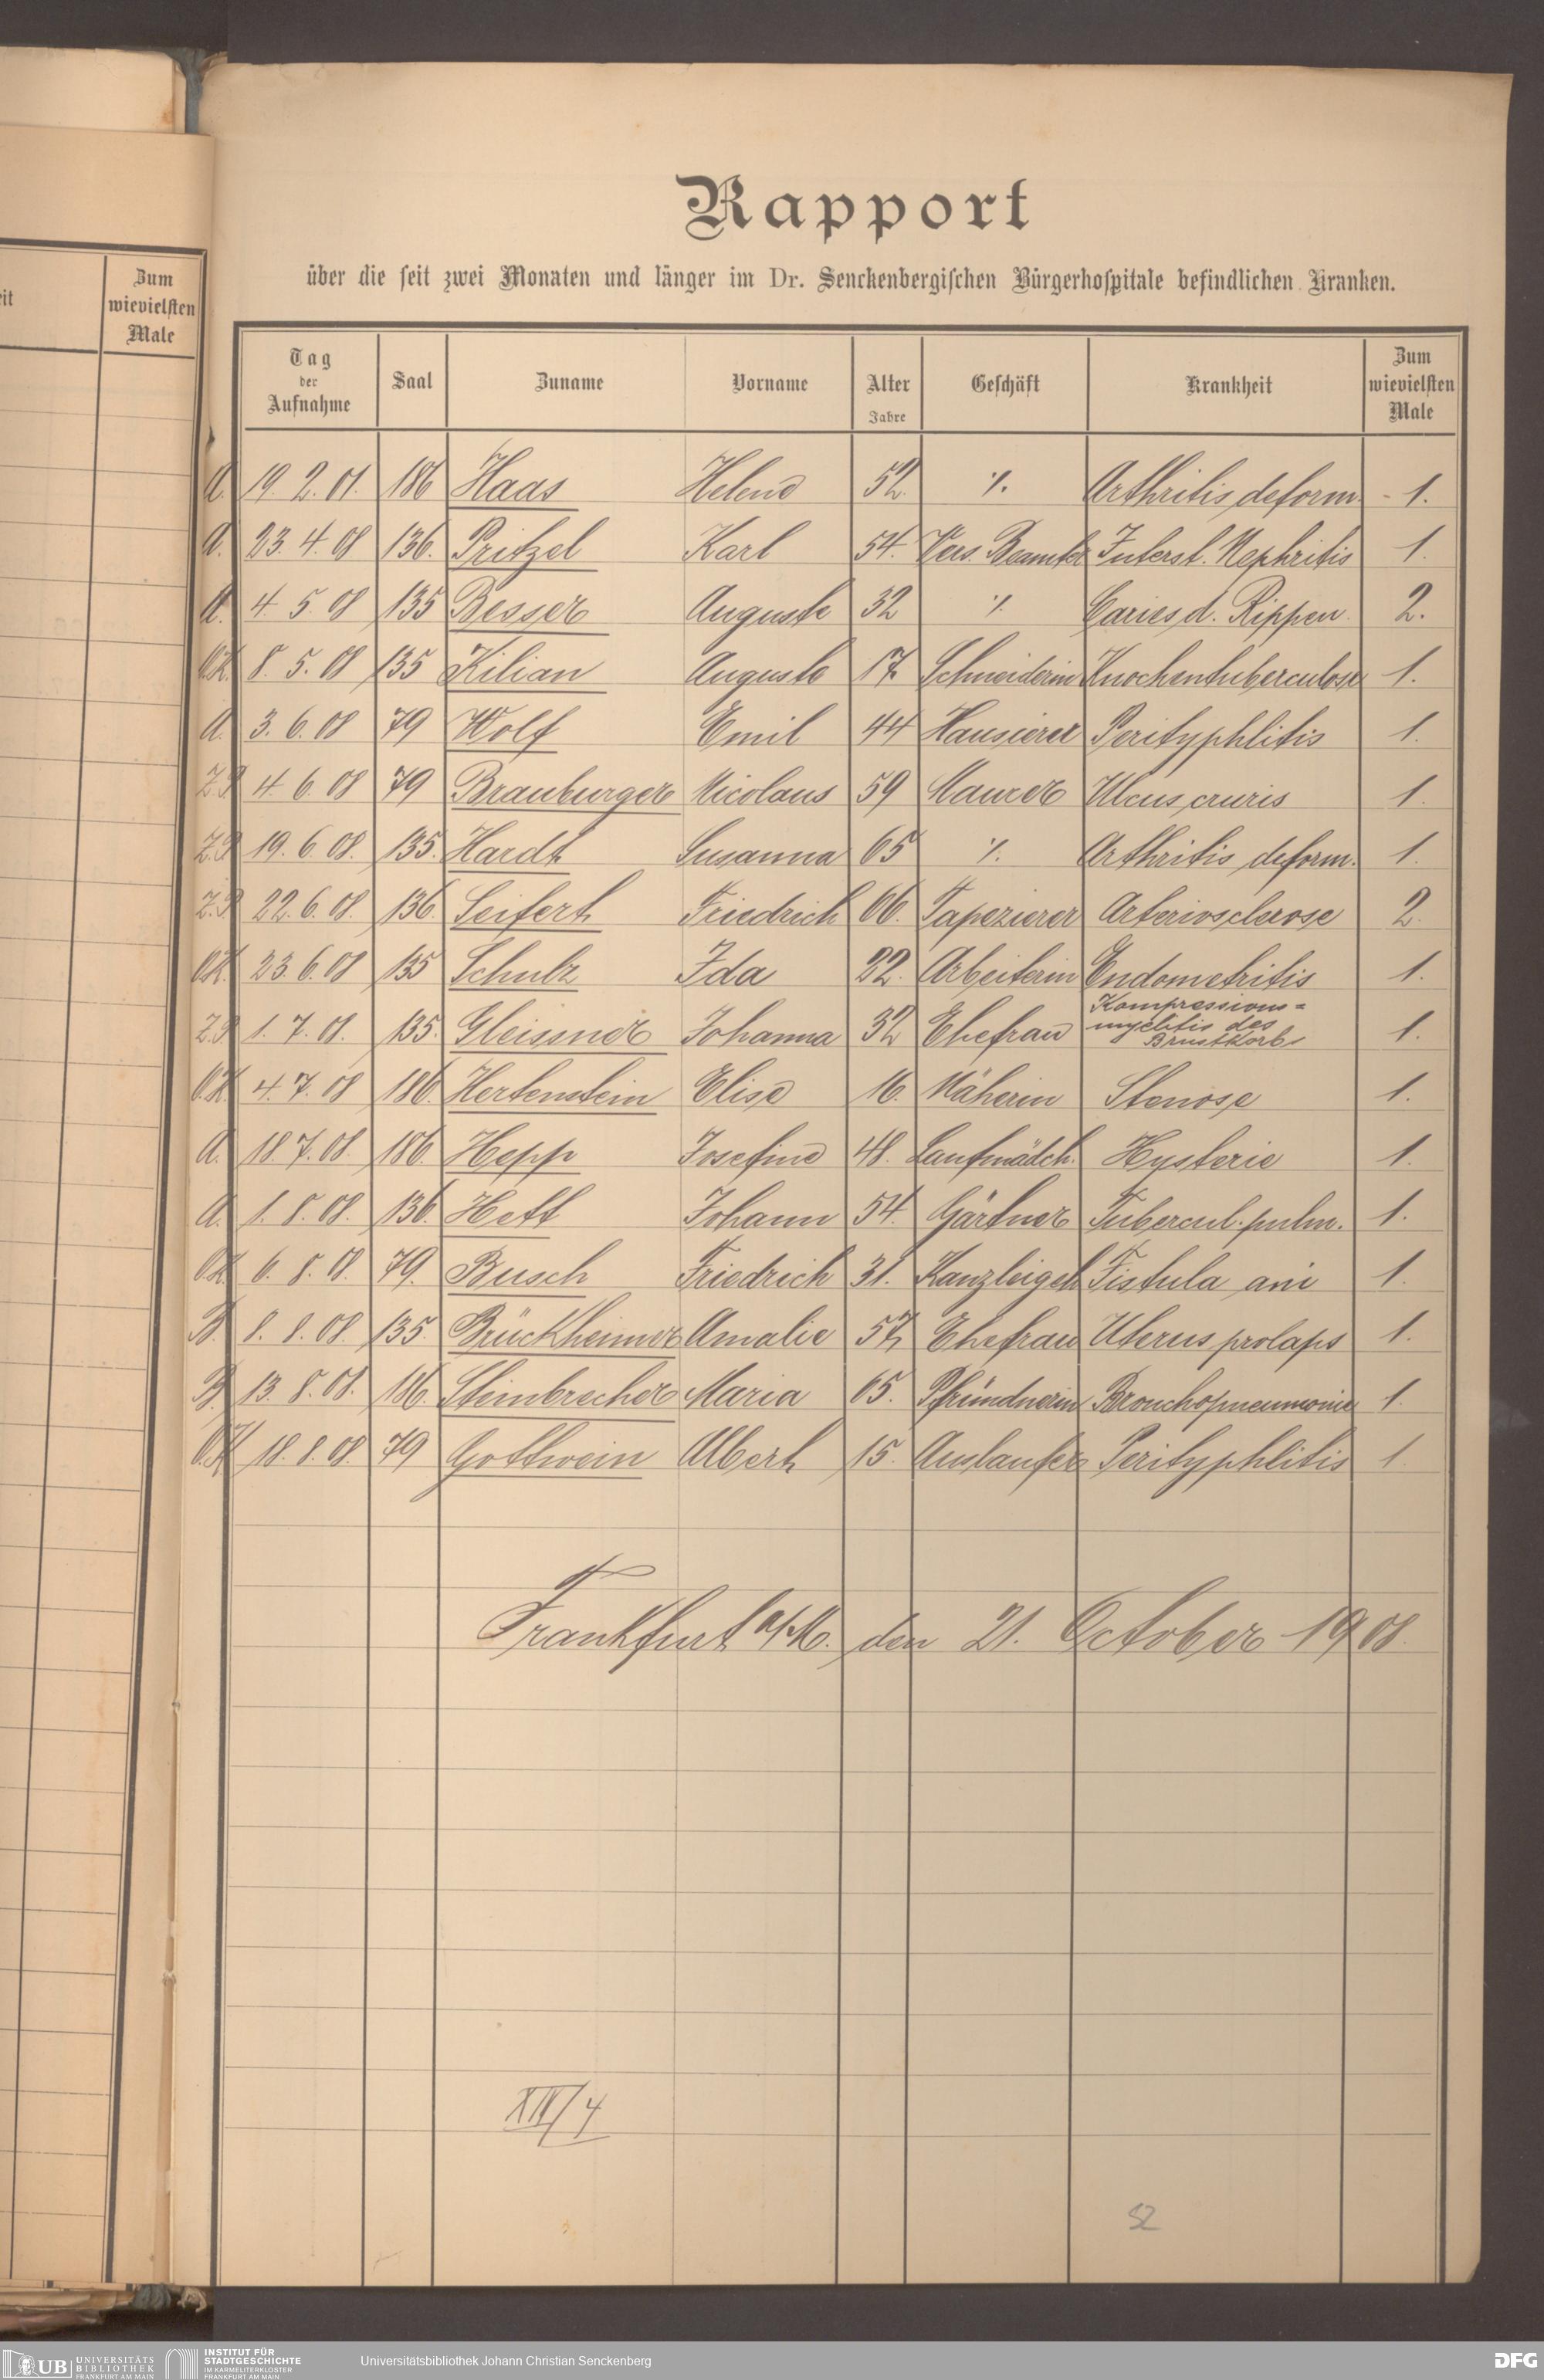 Rapport
über die seit zwei Monaten und länger im Dr. Senckenbergischen Bürgerhospitale befindlichen Kranken.
it
Zum
wievielsten
Male
Tag
der
Aufnahme
Saal
Zuname
Vorname
Alter
Jahre
Geschäft
Krankheit
Zum
wievielsten
Male
A. 19. 2. 01. 186 Haas Helene 52. ٪. Arthritis deform. 1.
A. 23. 4. 08 136. Pritzel Karl 54. Vers. Beamter Interst. Nephritis 1.
A. 4. 5. 08 135 Besser Auguste 32 ٪. Caries d. Rippen 2.
8. 5. 08 135 Kilian Auguste 17. Schneiderin Knochentuberculose 1.
A. 3. 6. 08 79 Wolf Emil 44 Hausierer Perityphlitis 1.
Z.P 4. 6. 08 79 Brauburger Nicolaus 59 Maurer Ulcus cruris 1.
Z.P 19. 6. 08. 135. Hardt Susanna 65 ٪. Arthritis deform. 1.
Z.P 22. 6. 08. 136 Seifert Friedrich 66. Tapezierer Arteriosclerose 2.
23. 6. 08 135 Schulz Ida 22. Arbeiterin Endometritis 1.
Z.P 1. 7. 08. 135. Gleissner Johanna 32 Ehefrau Kompressions=
myelitis des
Brustkorbs 1.
4. 7. 08 186. Hertenstein Elise 16. Näherin Stenose 1.
A. 18. 7. 08. 186. Hepp Josefine 48. Laufmädch. Hysterie 1.
A. 1. 8. 08. 136. Hett Johann 54. Gärtner Tubercul. pulm. 1.
6. 8. 08. 79. Busch Friedrich 31. Kanzleigeh Fistula ani 1.
B. 8. 8. 08 135. Brückheimer Amalie 57 Ehefrau Uterus prolaps 1.
B. 13. 8. 08. 186. Steinbrecher Maria 65. Pfründnerin Bronchopneumonie 1.
18. 8. 08. 79 Gottwein Albert 15. Auslaufer Perityphlitis 1
Frankfurt a/M. den 21. October 1908.
XIV/4
52
UB UNIVERSITÄTS
BIBLIOTHEK
FRANKFURT AM MAIN
INSTITUT FÜR
STADTGESCHICHTE
IM KARMELITERKLOSTER
FRANKFURT AM MAIN
Universitätsbibliothek Johann Christian Senckenberg
DFG